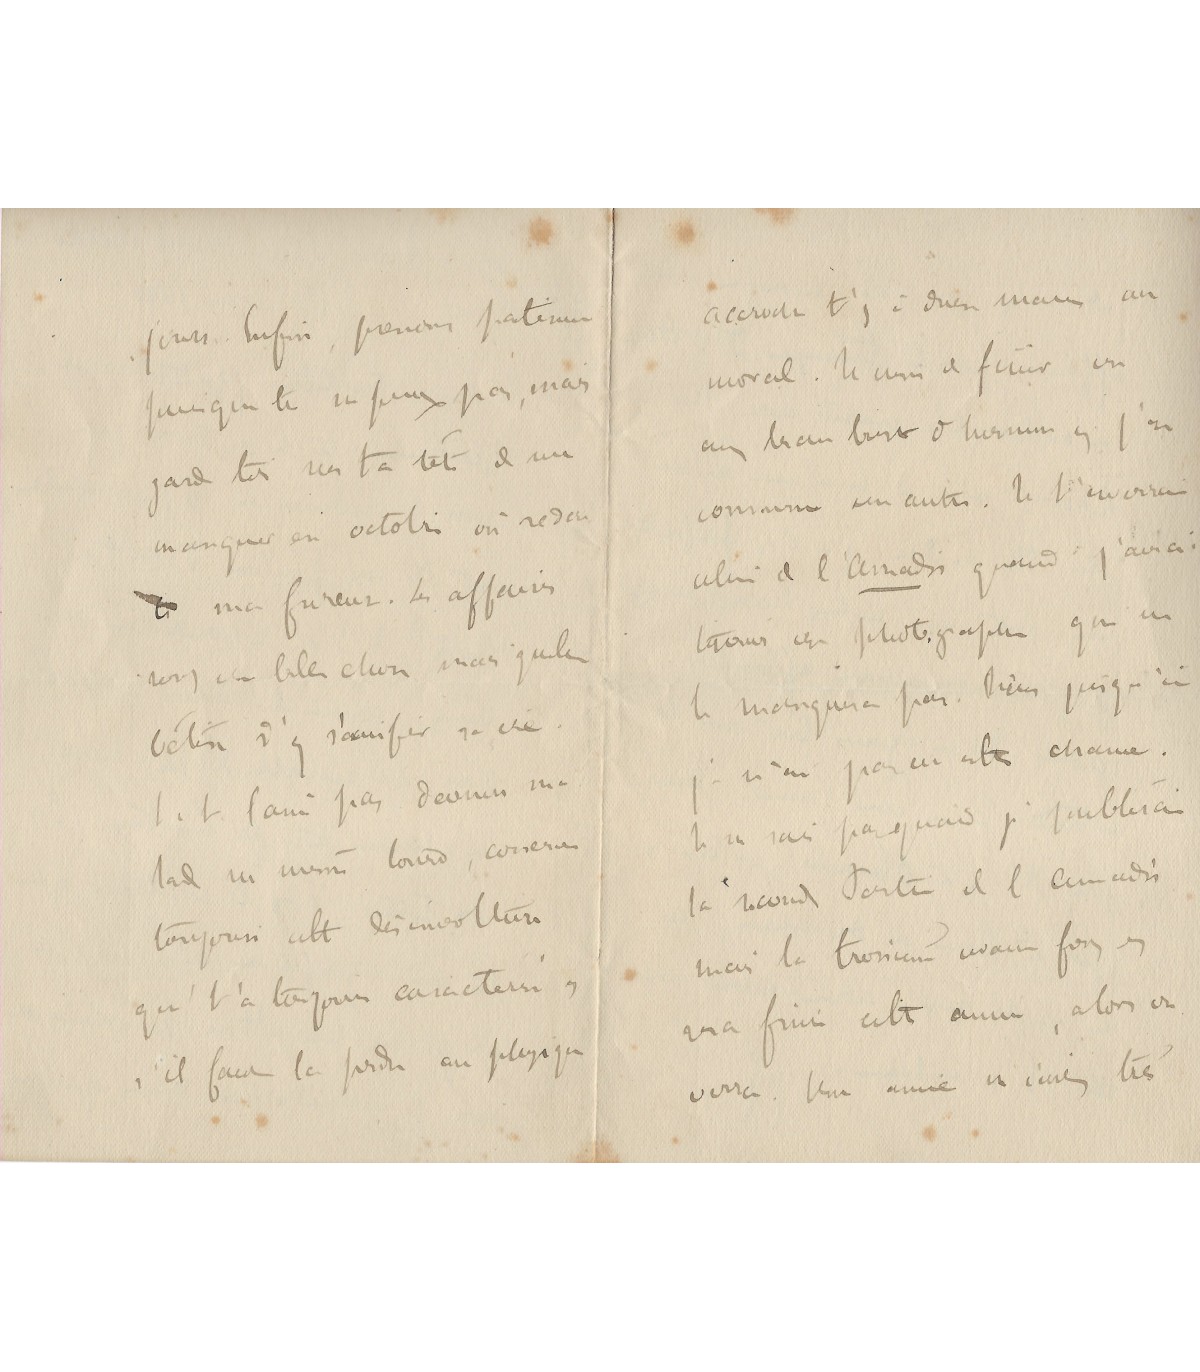 jours. Enfin, prenons patience
puisque tu ne peux pas, mais
garde toi sur ta tête de me
manquer en octobre où redou
te ma fureur. Les affaires
sont une belle chose mais quelle
bêtise d'y sacrifier sa vie.
Il ne faut pas devenir ma
lade ni même lourd, conserve
toujours cette désinvolture
qui t'a toujours caractérisé et
s'il faut la perdre au physique
accroche t'y à deux mains au
moral. Je viens de finir un
beau buste d'homme et j'en
commence un autre. Je t'enverrai
celui de l'Amadis quand j'aurai
une photographie qui en
le manquera pas. Mais jusqu'ici
je n'ai pas eu cette chance.
Je ne sais pas quand je publierai
la seconde Partie de l'Amadis
mais la troisième avance fort et
sera finie cette année, alors on
verra. Mon amie m'